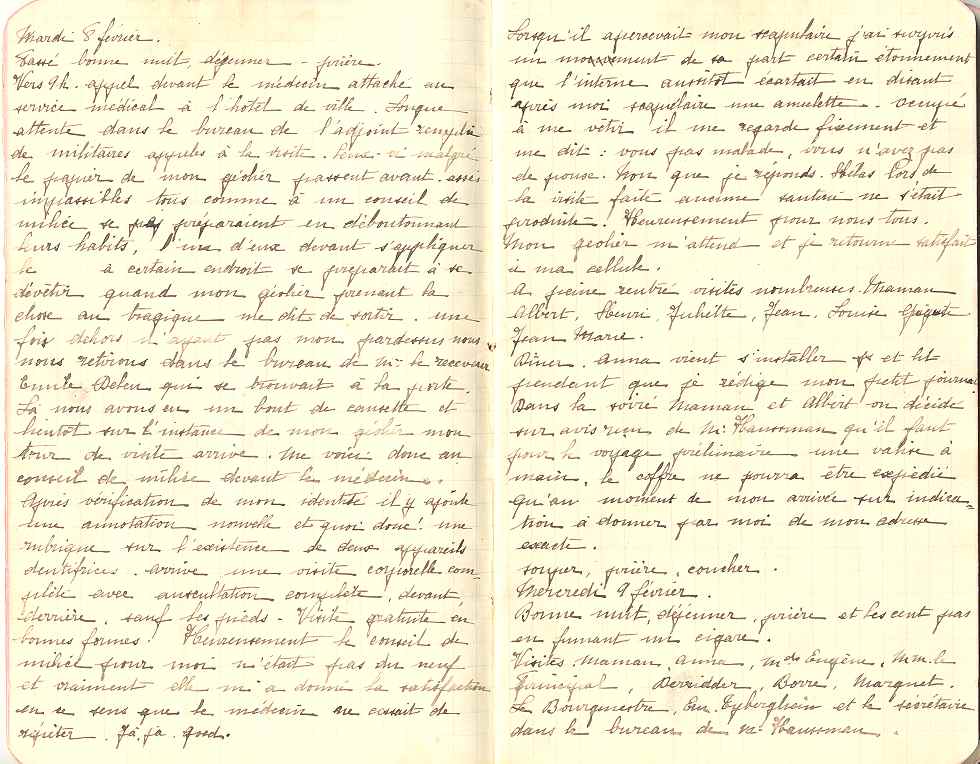 Mardi 8 février.
Passé bonne nuit, déjeuner - prière.
Vers 9h. appel devant le médecin attaché au
service médical à l'hôtel de ville. Longue
attente dans le bureau de l'adjoint remplie
de militaires appelés à la visite. Ceux-ci malgré
le papier de mon géolier passent avant. assis
impassibles tous comme à un conseil de
milice se préparaient en déboutonnant
leurs habits, l'un d'eux devant s'appliquer
le à certain endroit se préparait à se
dévêtir quand mon géolier prenant la
chose au tragique me dit de sortir. une
fois dehors n'ayant pas mon pardessus nous
nous retirons dans le bureau de Mr le receveur
Emile Deleu qui se trouvait à la porte.
Là nous avons eu un bout de causette et
bientot sur l'instance de mon géolier mon
tour de visite arrive. Me voici donc au
conseil de milice devant le médecin.
Après vérification de mon identité il y ajoute
une annotation nouvelle et quoi donc! une
rubrique sur l'existence de deux appareils
dentifrices. arrive une visite corporelle com-
plète avec auscultation complète, devant,
derrière, sauf les pieds - Visite gratuite en
bonnes formes! Heureusement le conseil de
milice pour moi n'était pas du neuf
et vraiment elle m'a donné la satisfaction
en ce sens que le médecin ne cessait de
répéter. Ja, ja. goed.
Lorsqu'il apercevait mon scapulaire j'ai surpris
un mouvement de sa part certain étonnement
que l'interne aussitôt écartait en disant
après moi scapulaire une amulette. occupé
à me vêtir il me regarde fixement et
me dit: vous pas malade, vous n'avez pas
de pouse. Non que je réponds. Hélas lors de
la visite faite aucune sauterie ne s'était
produite. Heureusement pour nous tous.
Mon géolier m'attend et je retourne satisfait
à ma cellule.
A peine rentré visites nombreuses. Maman
Albert, Henri, Juliette, Jean, Louise Auguste
Jean Marie.
Diner. Anna vient s'installer et lit
pendant que je rédige mon petit journal
Dans la soiré Maman et Albert on décide
sur avis reçu de Mr Haussman qu'il faut
pour le voyage préliminaire une valise à
main, le coffre ne pourra être expédié
qu'au moment de mon arrivée sur indica-
tion à donner par moi de mon adresse
exacte.
souper, prière, coucher.
Mercredi 9 février.
Bonne nuit, déjeuner, prière et les cent pas
en fumant un cigare.
Visites. Maman, Anna, Mde Eugène, Mm. le
Principal, Derridder, Borre, Marquet.
Le Bourgmestre, Em. Tyberghein et le sécrétaire
dans le bureau de Mr Haussman.